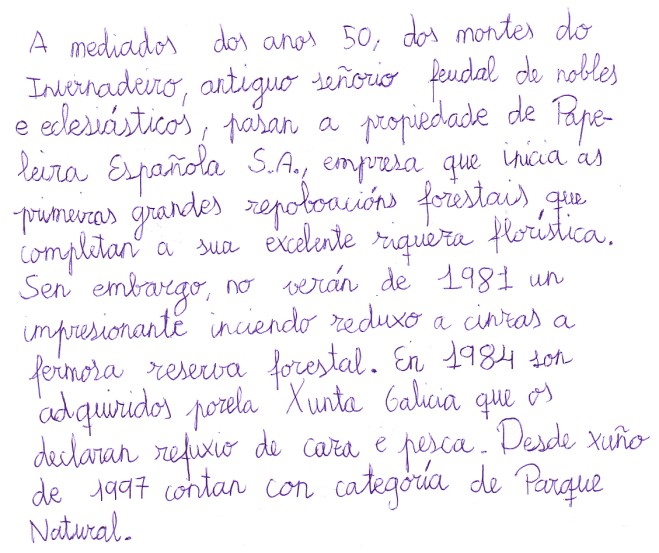 A mediados dos anos 50, dos montes do
Invernadeiro, antiguo señorio feudal de nobles
e eclesiásticos, pasan a propiedade de Pape-
leira Española S.A., empresa que inicia as
primeiras grandes repoboacións forestais que
completan a sua excelente riqueza florística.
Sen embargo, no verán de 1981 un
impresionante inciendo reduxo a cinzas a
fermosa reserva forestal. En 1984 son
adquiridos porela Xunta Galicia que os
declaran refuxio de caza e pesca. Desde xuño
de 1997 contan con categoría de Parque
Natural.